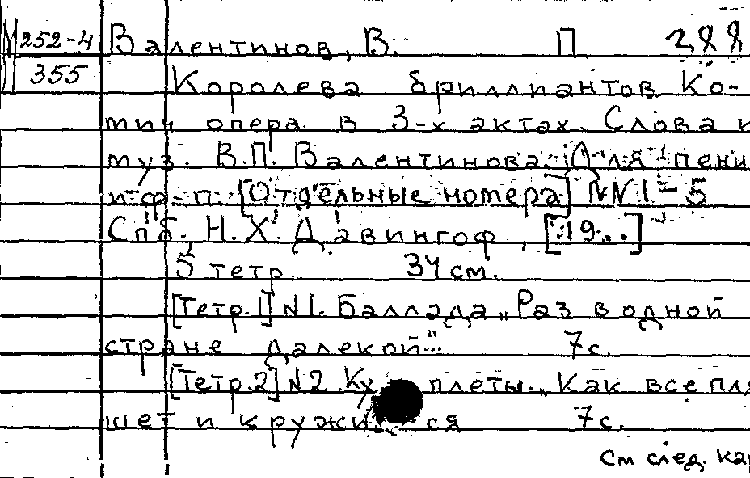 М252-4 Валентинов, В. П 288
355 Королева бриллиантов Ко-
мич опера в 3-х актах. Слова и
муз. В.П. Валентинова. Для пени
и ф-п. [Отдельные номера] NN1-5
Спб, Н.Х. Давингоф, [19..]
5 тетр 34 см.
[Тетр. 1] N1. Баллада „Раз в одной
стране далекой" 7с.
[Тетр. 2] N2 Куплеты „Как все пля
шет и кружится 7с.
См след. кар